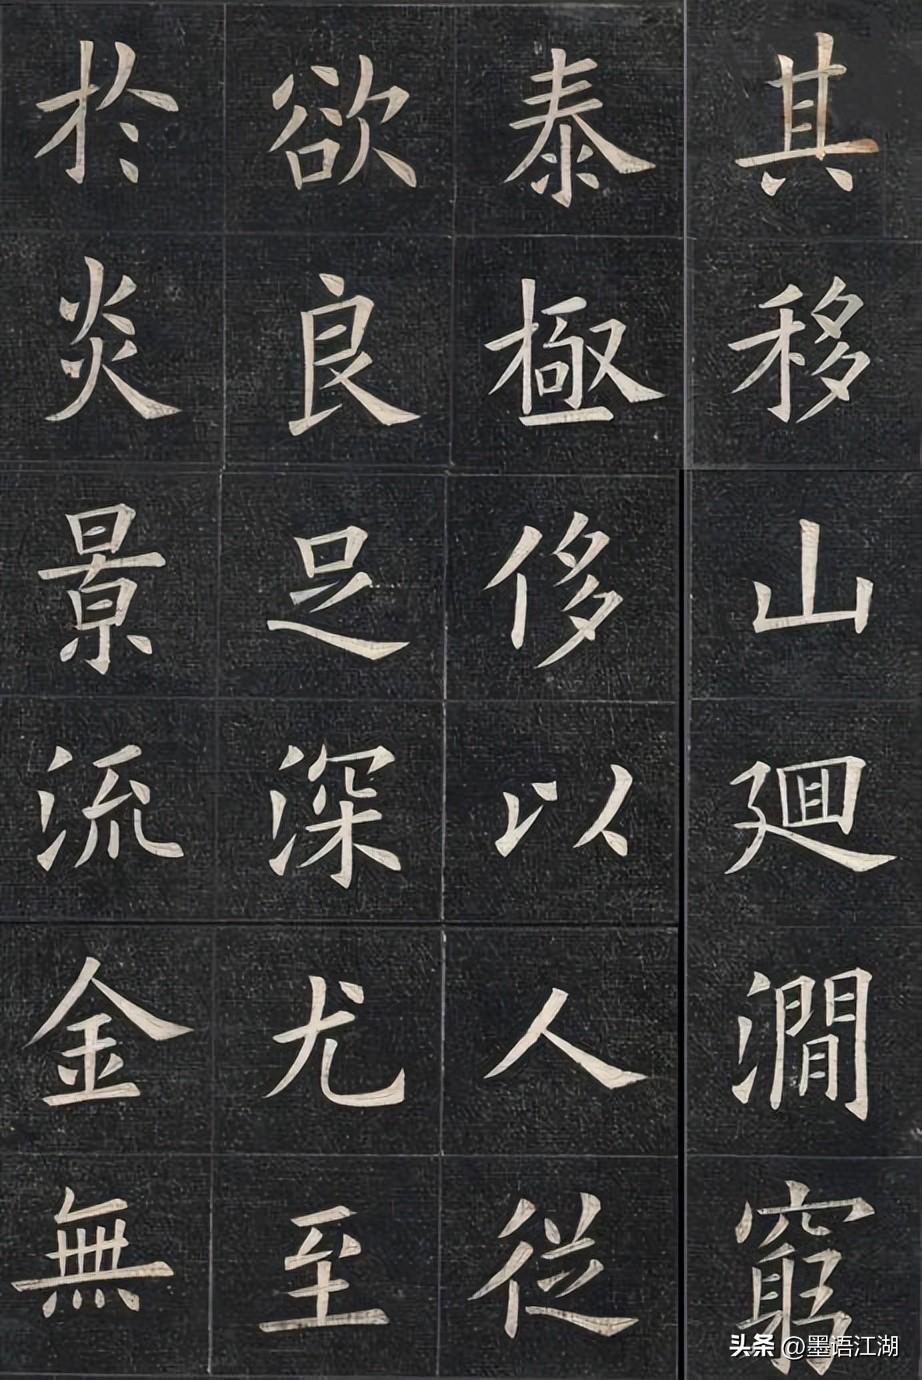 其移山廻澗窮
泰極侈以人從
欲良足深尤至
於炎景流金無
头条 @墨语江湖